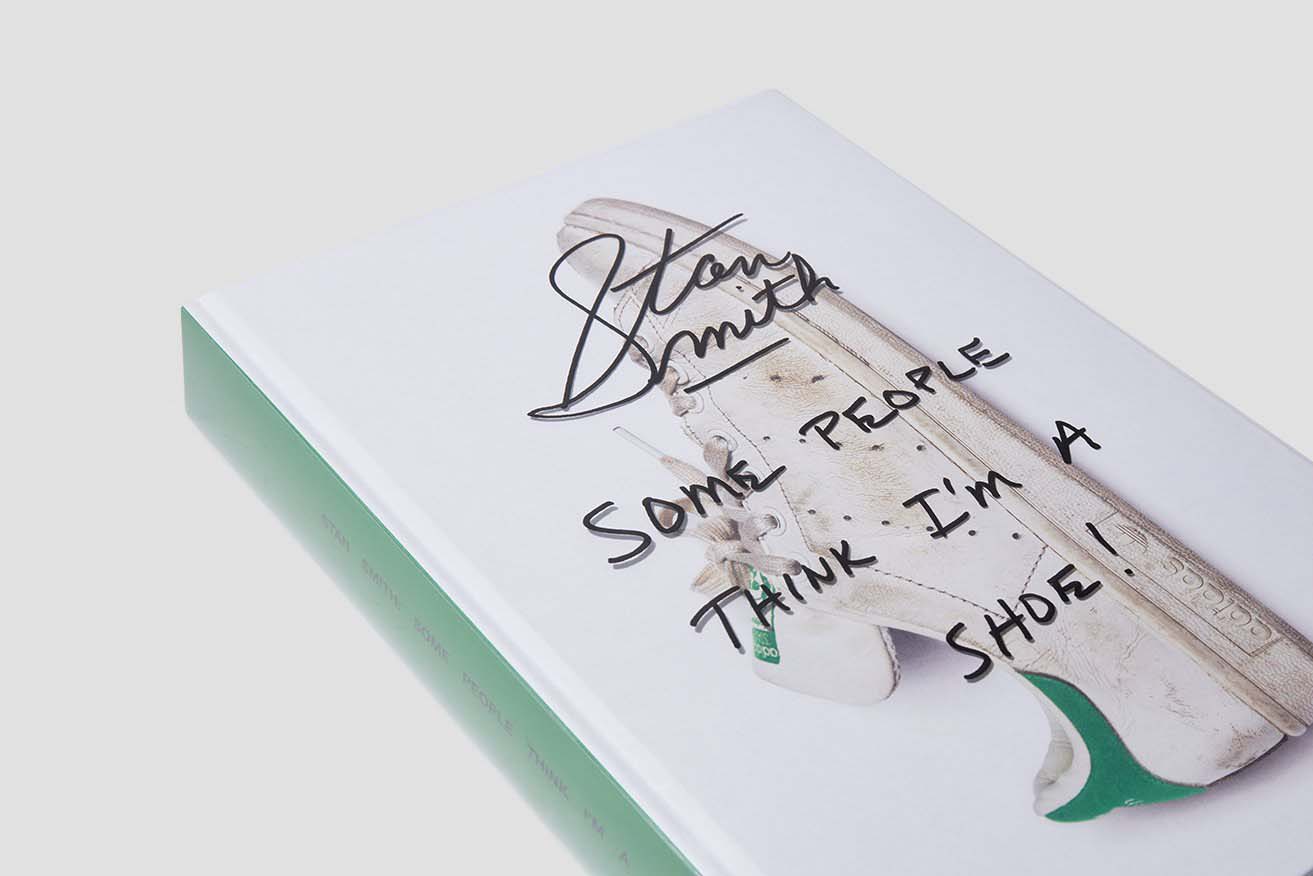 Stan
Smith
SOME PEOPLE
THINK I'M A
SHOE!
adidas
adidas
STAN SMITH SOME PEOPLE THINK I'M A